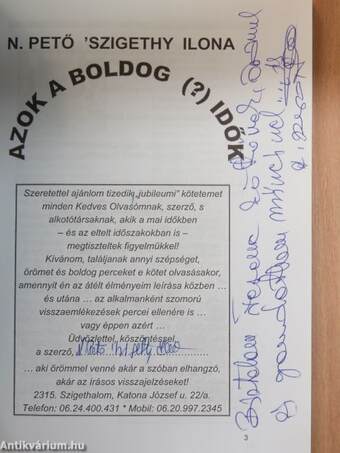 N. PETŐ 'SZIGETHY ILONA
AZOK A BOLDOG (?) IDŐK
Szeretettel ajánlom tizedik „jubileumi” kötetemet
minden Kedves Olvasómnak, szerző, s
alkotótársaknak, akik a mai időkben
– és az eltelt időszakokban is –
megtiszteltek figyelmükkel!
Kívánom, találjanak annyi szépséget,
örömet és boldog perceket e kötet olvasásakor,
amennyit én az átélt élményeim leírása közben …
és utána … az alkalmanként szomorú
visszaemlékezések percei ellenére is …
vagy éppen azért …
Üdvözlettel, köszöntéssel,
a szerző,
… aki örömmel venné akár a szóban elhangzó,
akár az írásos visszajelzéseket!
2315. Szigethalom, Katona József u. 22/a.
Telefon: 06.24.400.431 * Mobil: 06.20.997.2345
3
Antikvárium.hu